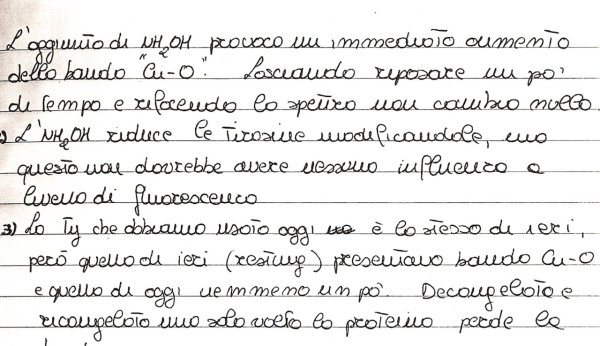 L'aggiunta di NH2OH provoca un immediato aumento
della banda "Cu-O". Lasciando riposare un po'
di tempo e rifacendo lo spettro non cambia nulla.
L'NH2OH riduce le tirosine modificandole, ma
questo non dovrebbe avere nessuna influenza a
livello di fluorescenza
3) La Ty che abbiamo usato oggi è la stessa di ieri,
però quella di ieri (resting) presentava banda Cu-O
e quella di oggi nemmeno un po'. Decongelata e
ricongelata una sola volta la proteina perde la